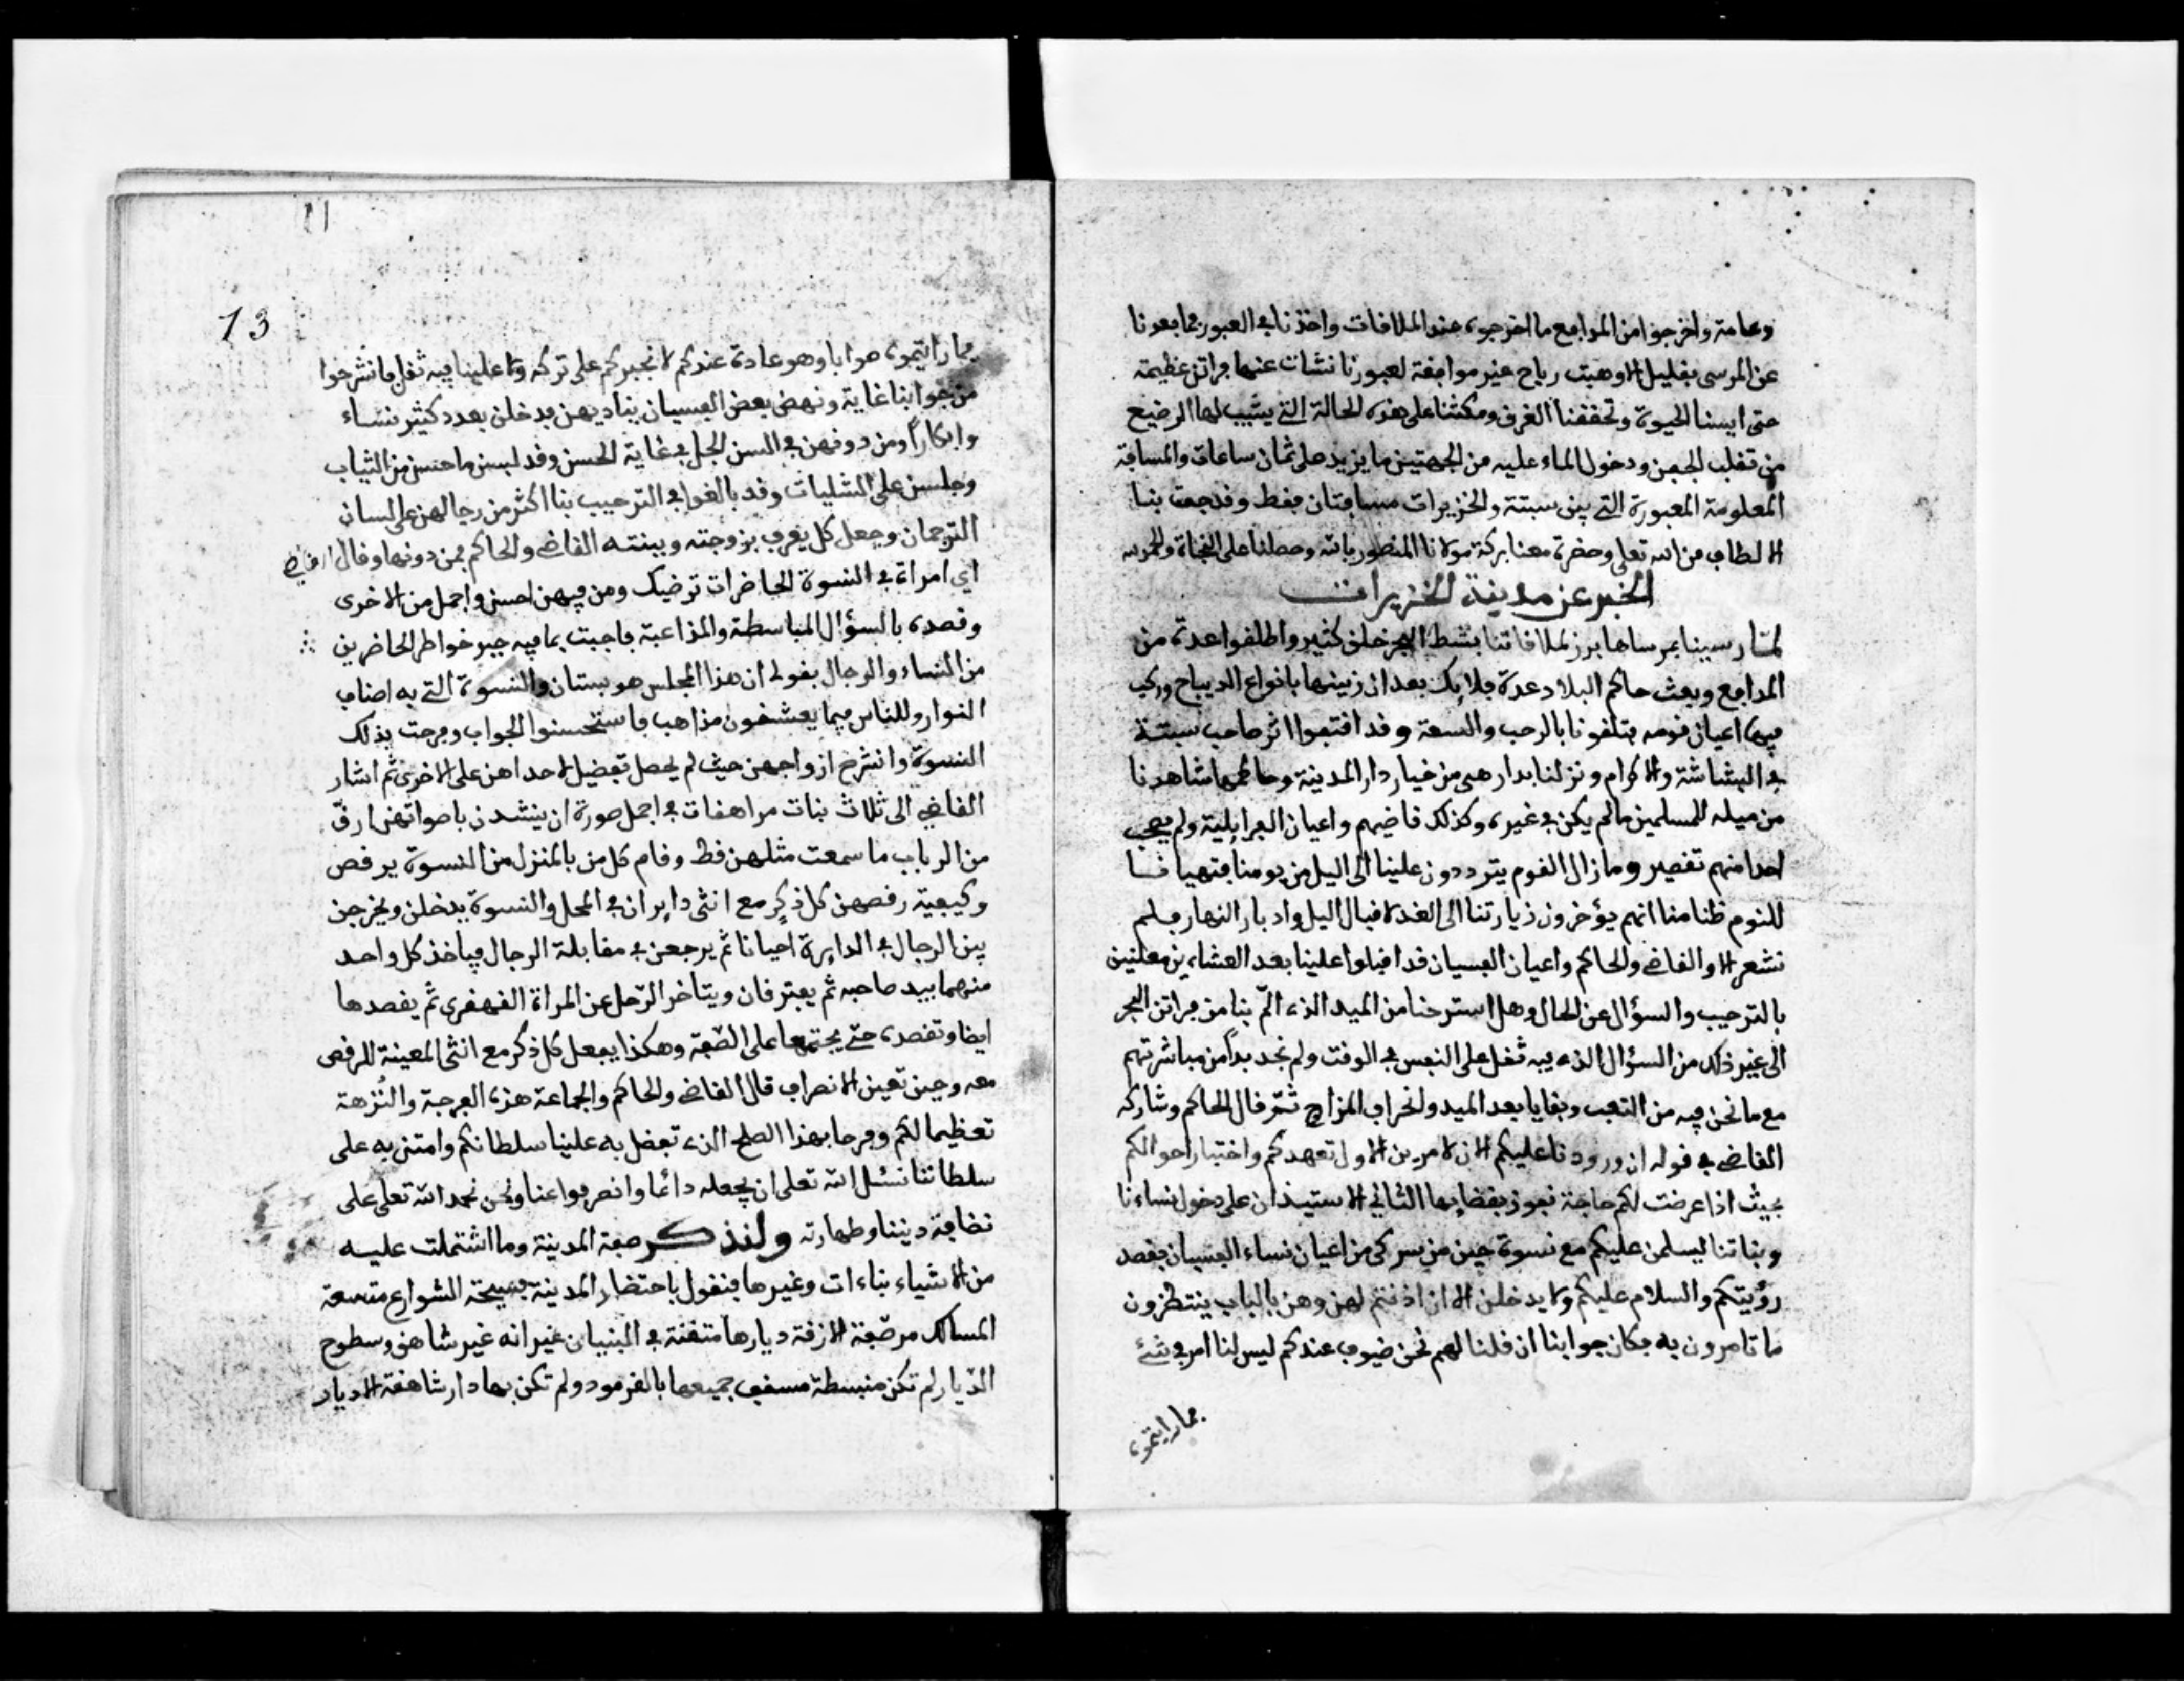 وعامة واخرجوا من المدافع ما اخرجوه عند الملاقات واخذنا في العبور فما بعدنا
عن المرسى بقليل الا وهبت رياح غير موافقة لعبورنا نشأت عنها فراتن عظيمة
حتى ايسنا الحيوة وتحققنا الغرق ومكثنا على هذه الحالة التي يشيب لها الرضيع
من تقلب الجفن ودخول الماء عليه من الجهتين ما يزيد على ثمان ساعات والمسافة
المعلومة المعبورة التي بين سبتة والخزيرات مسافتان فقط وقد حفت بنا
الالطاف من الله تعلى وحضرة معنا بركة مولانا المنصور بالله وحصلنا على النجاة والحمد لله
الخبر عن مدينة الخزيرات
لما رسينا بمرساها برز لملاقاتنا بشط البحر خلق كثير واطلقوا عدة من
المدافع وبعث حاكم البلاد عدة فلايك بعد ان زينها بانواع الديباج وركب
فيها اعيان قومه فتلقونا بالرحب والسعة وقد اقتفوا اثر صاحب سبتة
في البشاشة والاكرام ونزلنا بدار هي من خيار دار المدينة وحاكمها شاهدنا
من ميله للمسلمين ما لم يكن في غيره وكذلك قاضيهم واعيان البرايلية ولم يجب
احدا منهم تقصير وما زال القوم يترددون علينا الى اليل من يومنا فتهيأنا
للنوم ظنا منا انهم يؤخرون زيارتنا الى الغد لاقبال اليل وادبار النهار فلم
نشعر الا والقاضي والحاكم واعيان الفسيان قد اقبلوا علينا بعد العشاءين معلنين
بالترحيب والسؤال عن الحال وهل استرحنا من الميد الذي الم بنا من فراتن البحر
الى غير ذلك من السؤال الذي فيه ثقل على النفس في الوقت ولم نجد بدا من مباشرتهم
مع ما نحن فيه من التعب وبقايا بعد الميد وانحراف المزاج ثم قال الحاكم وشاركه
القاضي في قوله ان ورودنا عليكم الان لامرين الاول تعهدكم واختبار احوالكم
بحيث اذا عرضت لكم حاجة نفوز بقضايها الثاني الاستيذان على دخول نساءنا
وبناتنا ليسلمن عليكم مع نسوة جين من بيركى من اعيان نساء الفسيان بقصد
رؤيتكم والسلام عليكم ولا يدخلن الا ان اذنتم لهن وهن بالباب ينتظرون
ما تامرون به فكان جوابنا ان قلنا لهم نحن ضيوف عندكم ليس لنا امر في شئ
فما رايتموه
11
13
فما رايتموه صوابا وهو عادة عندكم لا نجبركم على تركه ولا علينا فيه ثقل فانشرحوا
من جوابنا غاية ونهض بعض الفسيان يناديهن فدخلن بعدد كثير نساء
وابكارا ومن دونهن في السن الجل في غاية الحسن وقد لبسن ما حسن من الثياب
وجلسن على الشليات وقد بالغوا في الترحيب بنا اكثر من رجالهن على لسان
الترجمان وجعل كل يعرف بزوجته وبينته القاضي والحاكم فمن دونها وقال القاضي
اي امراة في النسوة الحاضرات ترضيك ومن فيهن احسن واجمل من الاخرى
وقصده بالسؤال المباسطة والمذاعبة فاجبت بما فيه جبر خواطر الحاضرين
من النساء والرجال بقولي ان هذا المجلس هو بستان والنسوة التي به اصناف
النوار وللناس فيما يعشقون مذاهب فاستحسنوا الجواب وفرحت بذلك
النسوة وانشرح ازواجهن حيث لم يحصل تفضيل لاحداهن على الاخرى ثم اشار
القاضي الى ثلاث بنات مراهقات في اجمل صورة ان ينشدن باصواتهن ارق
من الرباب ما سمعت مثلهن قط وقام كل من بالمنزل من النسوة يرقص
وكيفية رقصهن كل ذكر مع انثى دايران في المحل والنسوة يدخلن ويخرجن
بين الرجال في الدايرة احيانا ثم يرجعن في مقابلة الرجال فياخذ كل واحد
منهما بيد صاحبه ثم يفترقان ويتاخر الرجل عن المراة القهقرى ثم يقصدها
ايضا وتقصده حتى يجتمعا على الصفة وهكذا يفعل كل ذكر مع انثى المعينة للرقص
معه وحين تعين الانصراف قال القاضي والحاكم والجماعة هذه الفرجة والنزهة
تعظيما لكم وفرحا بهذا الصلح الذي تفضل به علينا سلطانكم وامتن به على
سلطاننا نسئل الله تعلى ان يجعله دائما وانصرفوا عنا ونحن نحمد الله تعلى على
نضافة ديننا وطهارته ولنذكر صفة المدينة وما اشتملت عليه
من الاشياء بناءات وغيرها فنقول باختصار المدينة فسيحة الشوارع متسعة
المسالك مرصفة الازقة ديارها متقنة في البنيان غير انه غير شاهق وسطوح
الديار لم تكن منبسطة مسقف جميعها بالقرمود ولم تكن بها دار شاهقة الا ديار